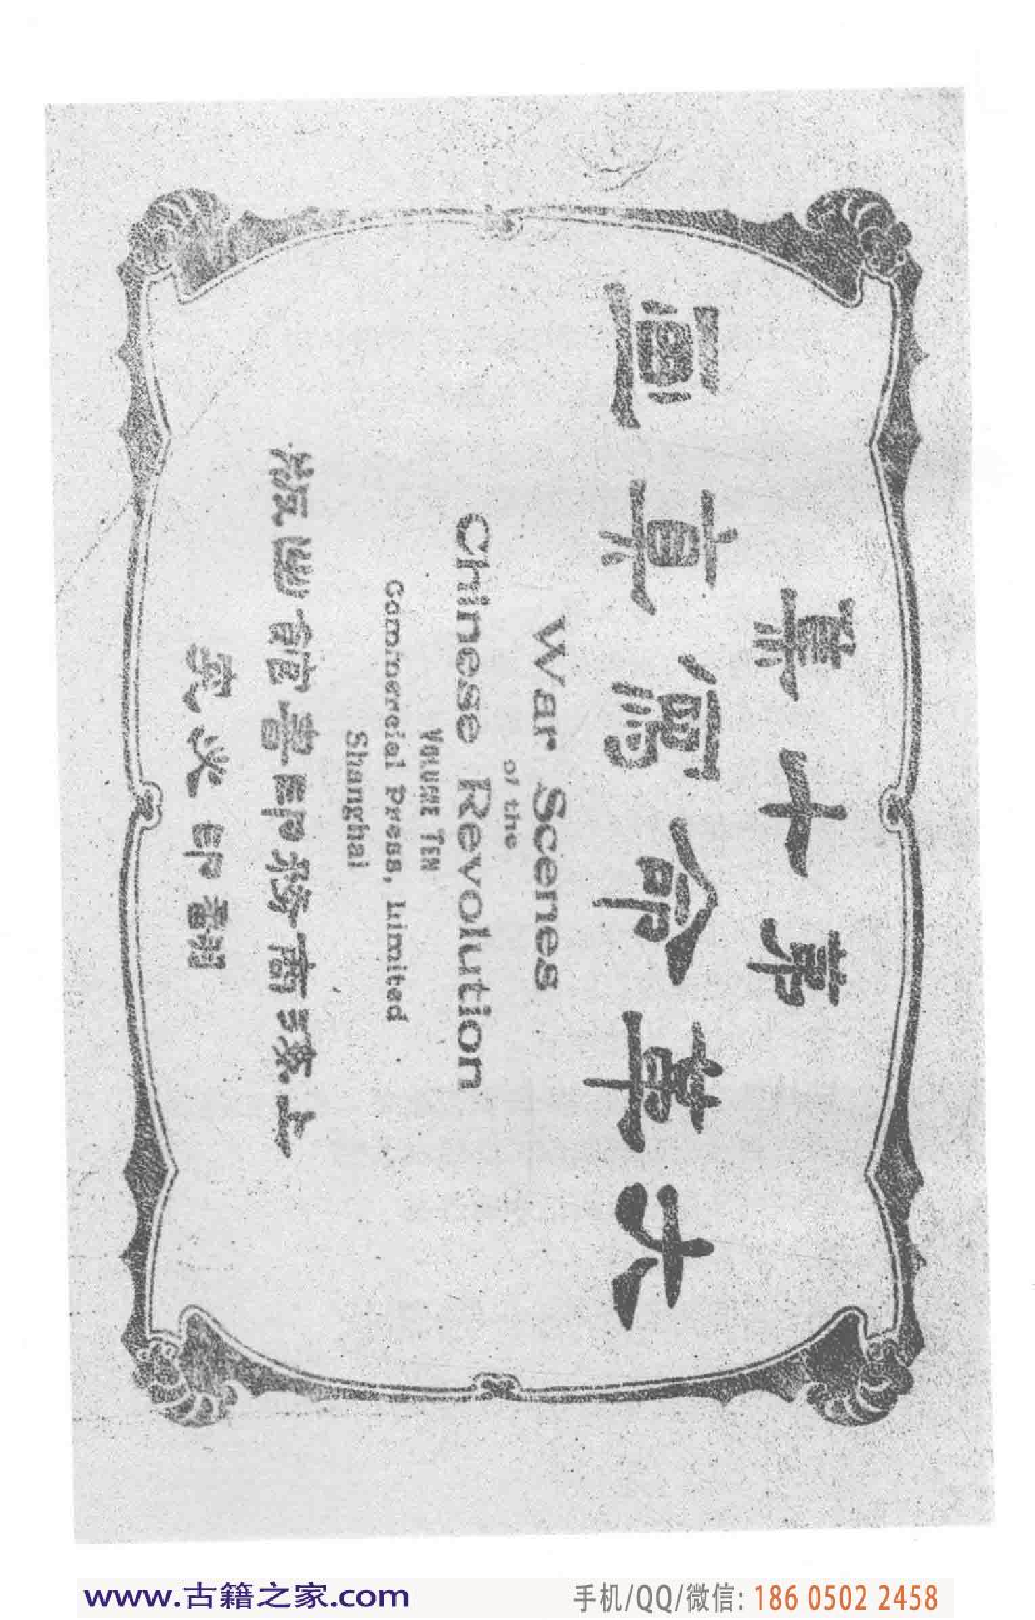 第十集
大革命寫真画
War Scenes
of the
Chinese Revolution
VOLUME TEN
Commercial Press, Limited
Shanghai
上海商務印書館出版
翻印必究
www.古籍之家.com
手机/QQ/微信: 186 0502 2458